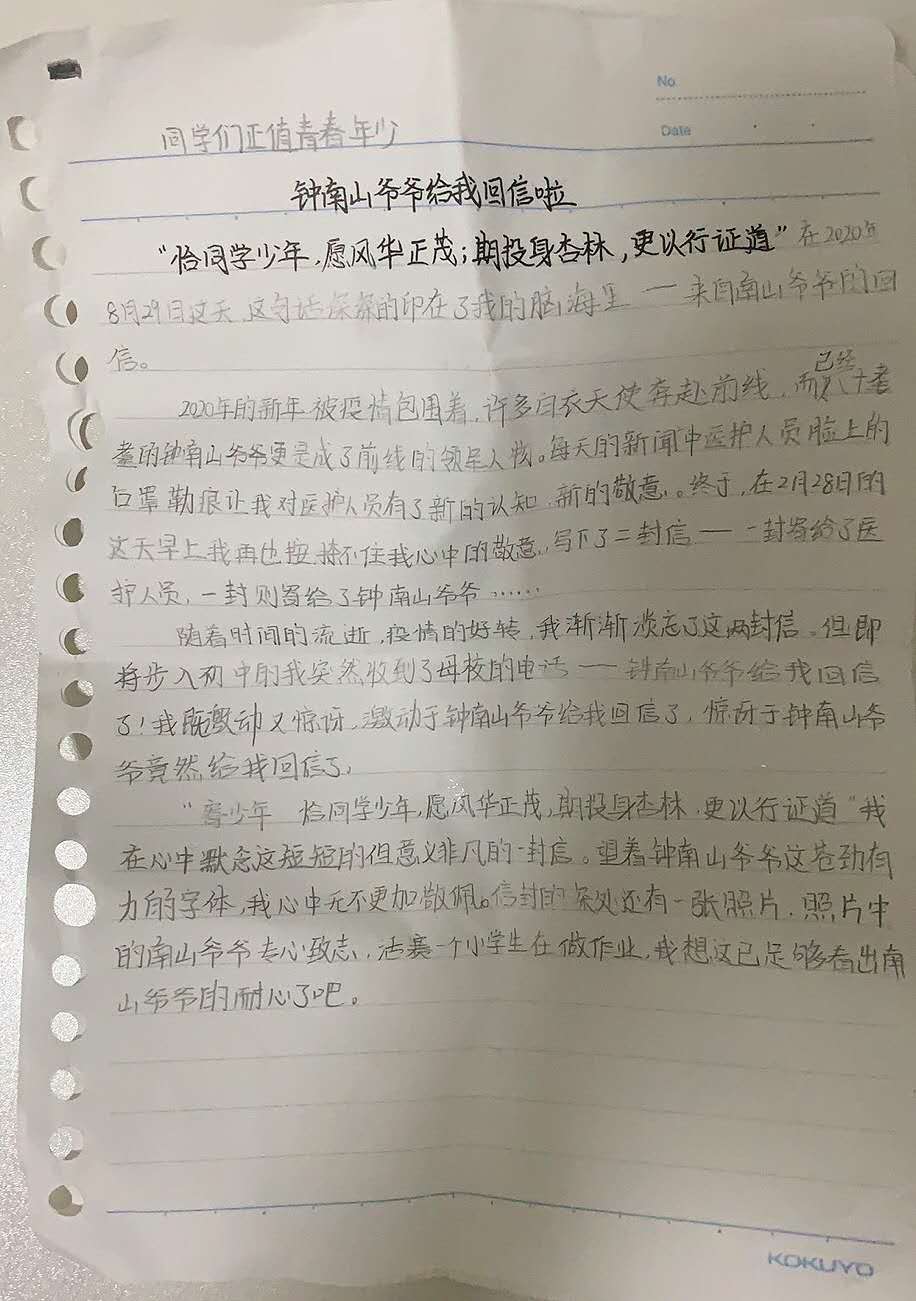 No
Date
同学们正值青春年少
钟南山爷爷给我回信啦
“恰同学少年,愿风华正茂;期投身杏林,更以行证道”在2020年
8月29日这天,这句话深深的印在了我的脑海里——来自南山爷爷的回
信。
已经
2020年的新年被疫情包围着,许多白衣天使奔赴前线,而八十耄
耋的钟南山爷爷更是成了前线的领军人物。每天的新闻中医护人员脸上的
口罩勒痕让我对医护人员有了新的认知,新的敬意。终于,在2月28日的
这天早上我再也按捺不住我心中的敬意,写下了二封信——一封寄给了医
护人员,一封则寄给了钟南山爷爷……
随着时间的流逝,疫情的好转,我渐渐淡忘了这两封信。但即
将步入初中的我突然收到了母校的电话——钟南山爷爷给我回信
了!我既激动又惊讶,激动于钟南山爷爷给我回信了,惊讶于钟南山爷
爷竟然给我回信了,
“春少年 恰同学少年,愿风华正茂,期投身杏林,更以行证道”我
在心中默念这短短的但意义非凡的一封信。望着钟南山爷爷这苍劲有
力的字体,我心中无不更加敬佩。信封的深处还有一张照片,照片中
的南山爷爷专心致志,活赛一个小学生在做作业,我想这已足够看出南
山爷爷的耐心了吧。
KOKUYO